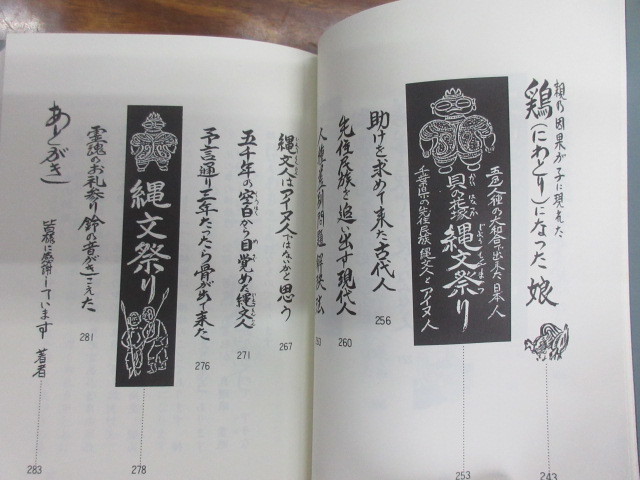 親の因果が子に現れた
鶏(にわとり)になった娘
243
五色人種の大和合で出来た日本人
貝の花塚 縄文祭り
千葉県の先住民族 縄文人とアイヌ人
253
助けを求めて来た古代人
256
先住民族を追い出す現代人
260
人種差別問題解決法
63
縄文人はアイヌ人ではないかと思う
267
五千年の空白から目覚めた縄文人
271
予言通り三年たったら骨が出て来た
276
縄文祭り
278
霊魂のお礼参り 鈴の音がきこえた
281
あとがき
皆様に感謝しています 著者
283